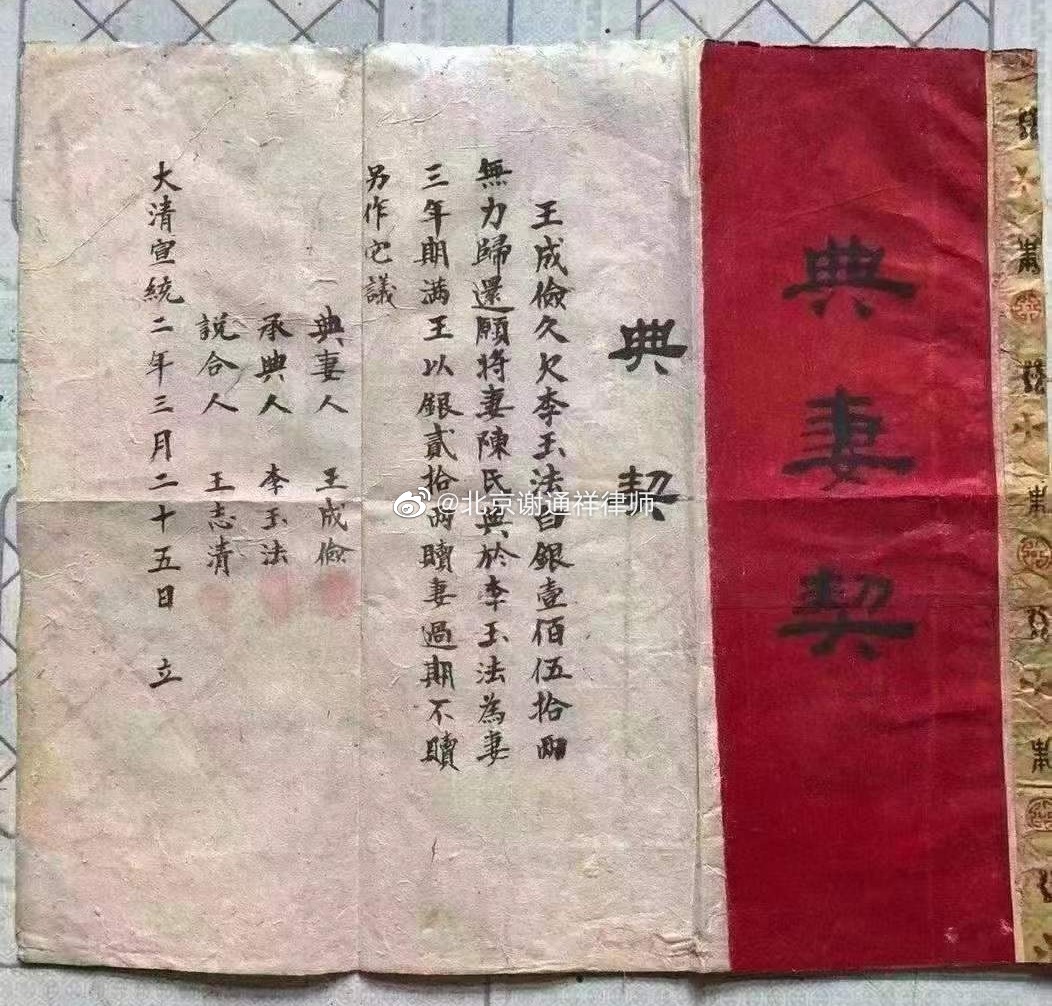 典妻契
典契
王成儉久欠李玉法白銀壹佰伍拾兩
無力歸還願將妻陳氏典於李玉法為妻
三年期滿王以銀貳拾兩贖妻過期不贖
另作它議
典妻人 王成儉
承典人 李玉法
説合人 王志清
大清宣統二年三月二十五日 立
@北京谢通祥律师